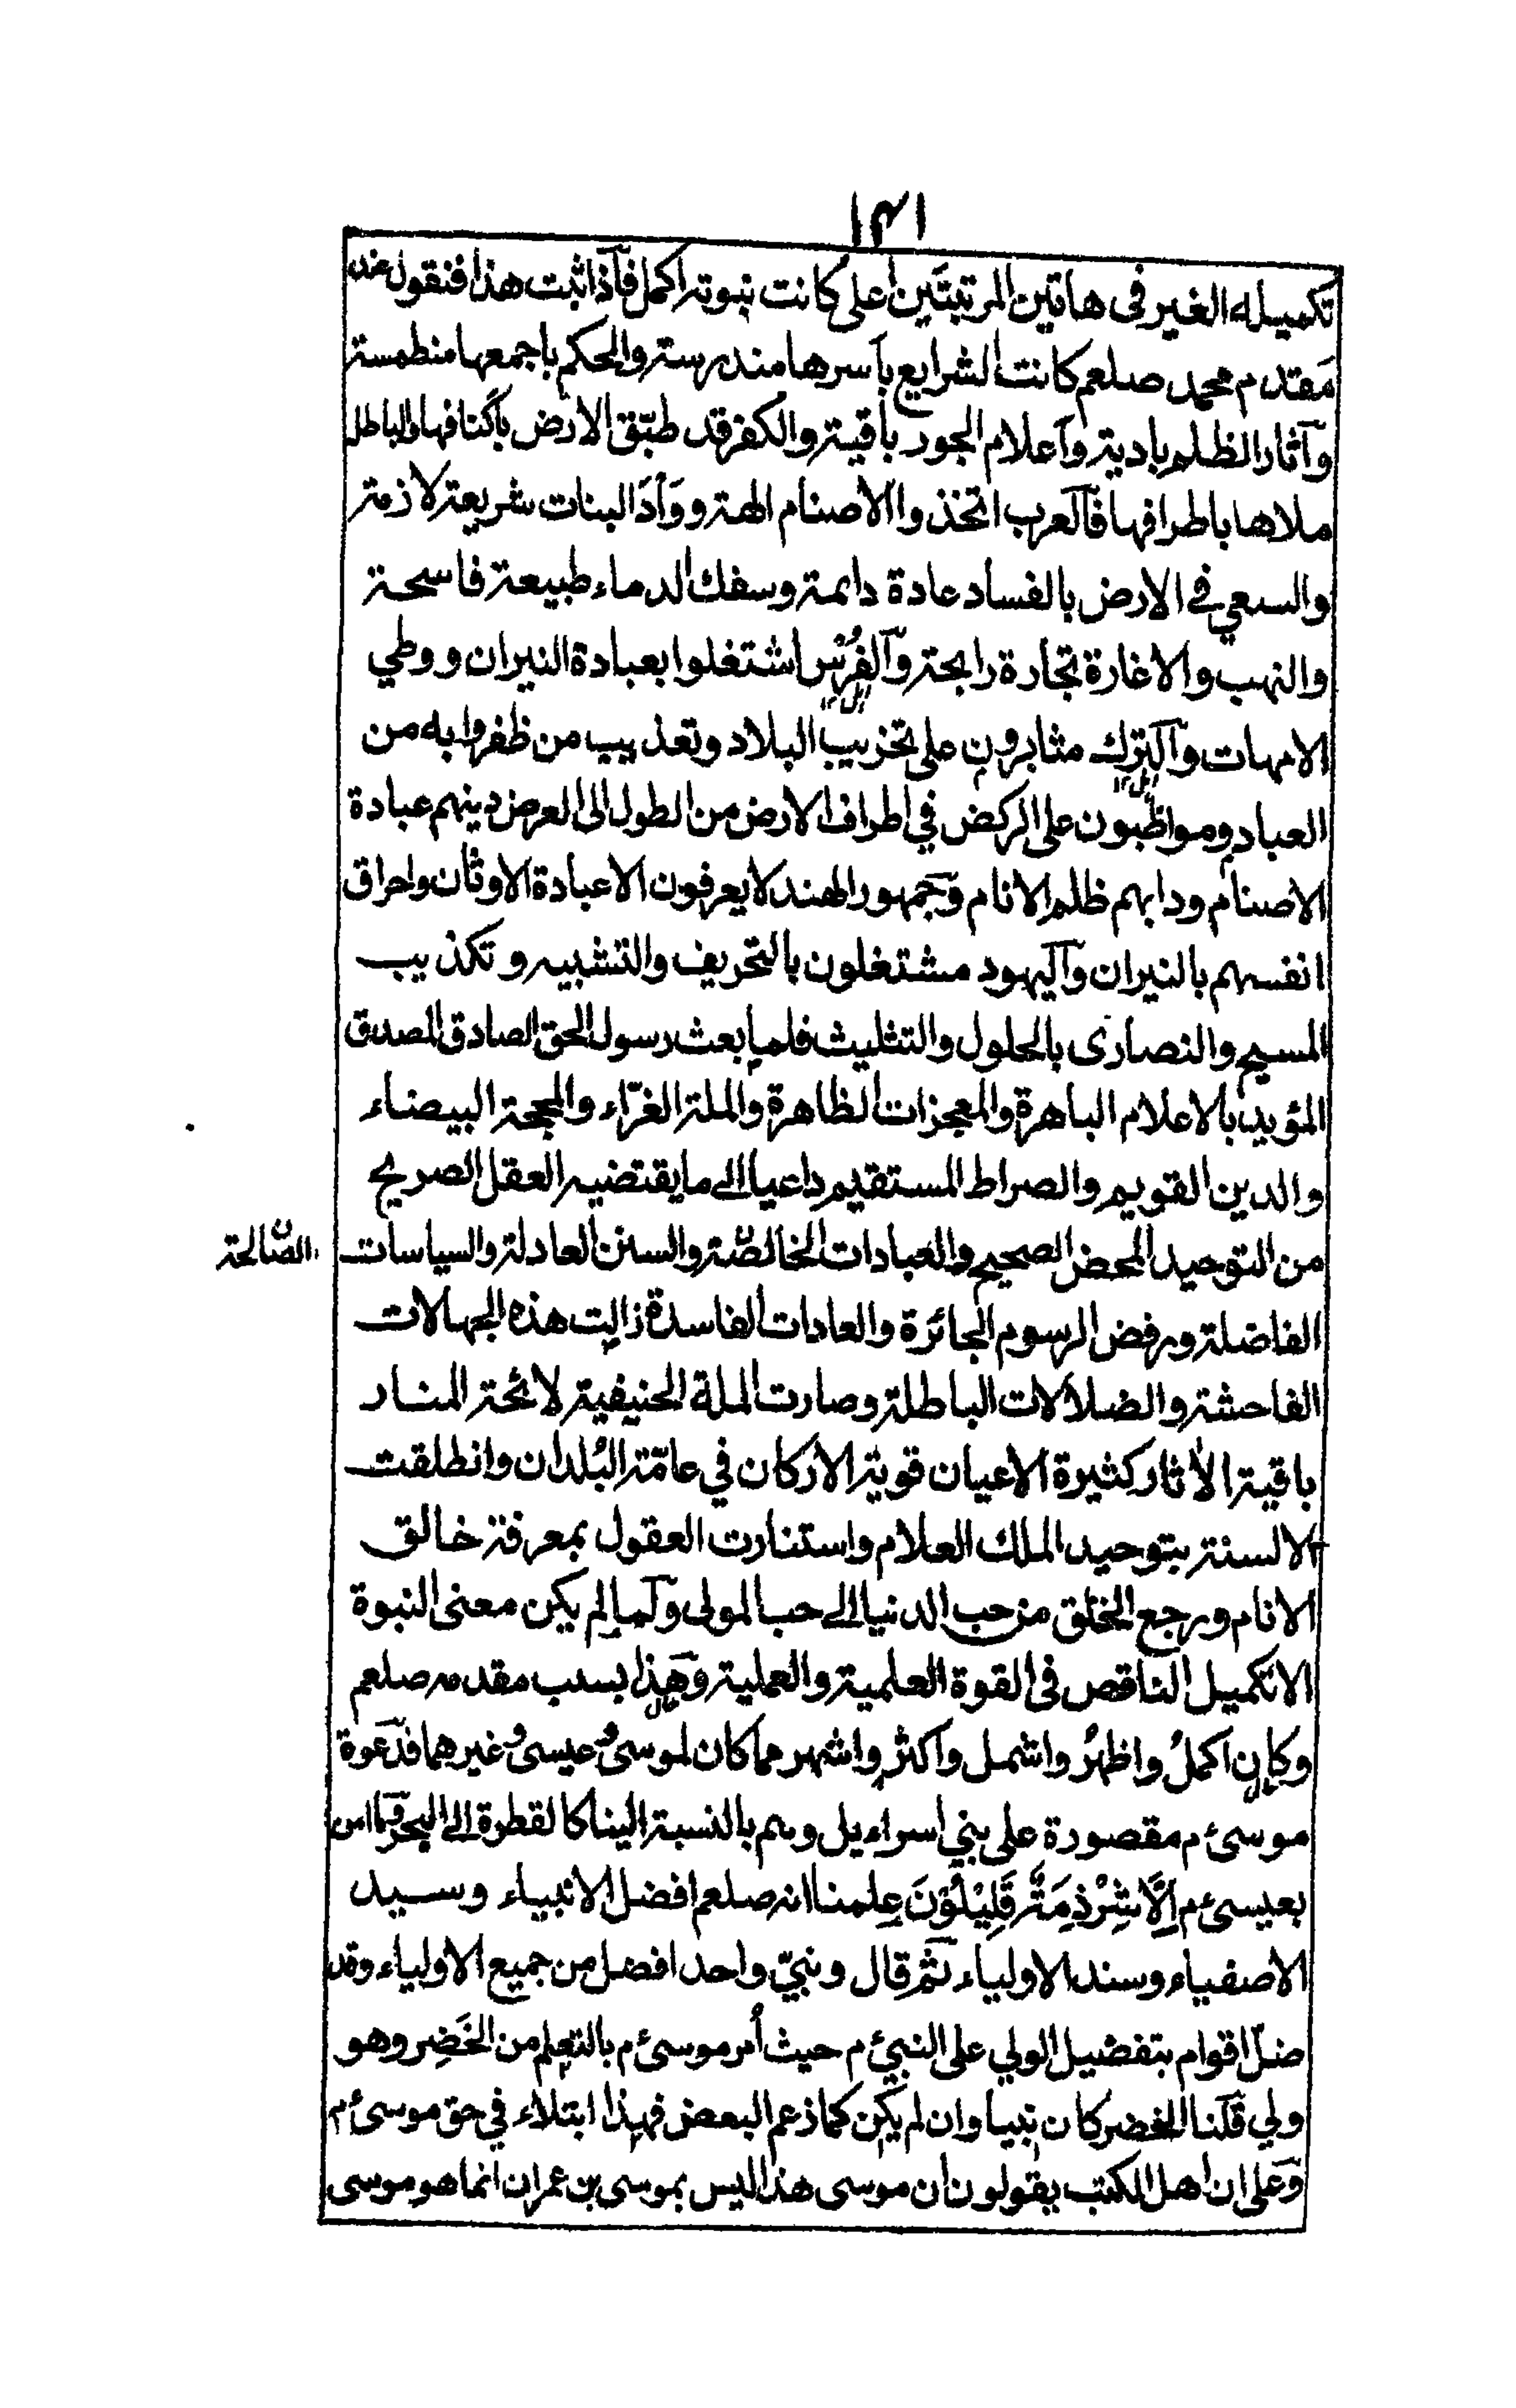 ۱۴۱
تكميله الغير فى هاتين المرتبتين اعلى كانت نبوته اكمل فاذا ثبت هذا فنقول عند
مقدم محمد صلعم كانت الشرايع باسرها مندرسة والحكم باجمعها منطمسة
وآثار الظلم بادية واعلام الجور باقية والكفر قد طبّق الارض باكنافها والباطل
ملاها باطرافها فالعرب اتخذوا الاصنام الهة ووَأدَ البنات شريعة لازمة
والسعي في الارض بالفساد عادة دائمة وسفك الدماء طبيعة فاسحة
والنهب والاغارة تجارة رابحة والفُرْس اشتغلوا بعبادة النيران ووطي
الامهات والترك مثابرون على تخريب البلاد وتعذيب من ظفروا به من
العباد ومواظبون على الركض في اطراف الارض من الطول الى العرض دينهم عبادة
الاصنام ودابهم ظلم الانام وجمهور الهند لا يعرفون الا عبادة الاوثان واحراق
انفسهم بالنيران واليهود مشتغلون بالتحريف والتشبيه وتكذيب
المسيح والنصارى بالحلول والتثليث فلما بعث رسول الحق الصادق المصدق
المؤيد بالاعلام الباهرة والمعجزات الظاهرة والملة الغرّاء والمحجة البيضاء
والدين القويم والصراط المستقيم داعيا الى ما يقتضيه العقل الصريح
من التوحيد المحض الصحيح والعبادات الخالصة والسنن العادلة والسياسات
الصالحة
الفاضلة ورفض الرسوم الجائرة والعادات الفاسدة زالت هذه الجهالات
الفاحشة والضلالات الباطلة وصارت الملة الحنيفية لائحة المنار
باقية الاثار كثيرة الاعيان قوية الاركان في عامّة البُلدان وانطلقت
الالسنة بتوحيد الملك العلام واستنارت العقول بمعرفة خالق
الانام ورجع الخلق من حب الدنيا الى حب المولى ولما لم يكن معنى النبوة
الا تكميل الناقص فى القوة العلمية والعملية وهذا بسبب مقدمه صلعم
وكان اكملُ واظهرُ واشمل واكثر واشهر مما كان لموسى وعيسى وغيرهما فدعوة
موسى م مقصورة على بني اسراءيل وهم بالنسبة الينا كالقطرة الى البحر وما امن
بعيسى م اِلَّا شِرْذِمَةٌ قَلِيْلُوْنَ علمنا انه صلعم افضل الانبياء وسيد
الاصفياء وسند الاولياء ثم قال ونبيّ واحد افضل من جميع الاولياء وقد
ضلّ اقوام بتفضيل الولي على النبي م حيث اُمر موسى م بالتعلم من الخَضِر وهو
ولي قلنا الخضر كان نبيا وان لم يكن كما زعم البعض فهذا ابتلاء في حق موسى م
وعلى ان اهل الكتب يقولون ان موسى هذا ليس بموسى بن عمران انما هو موسى